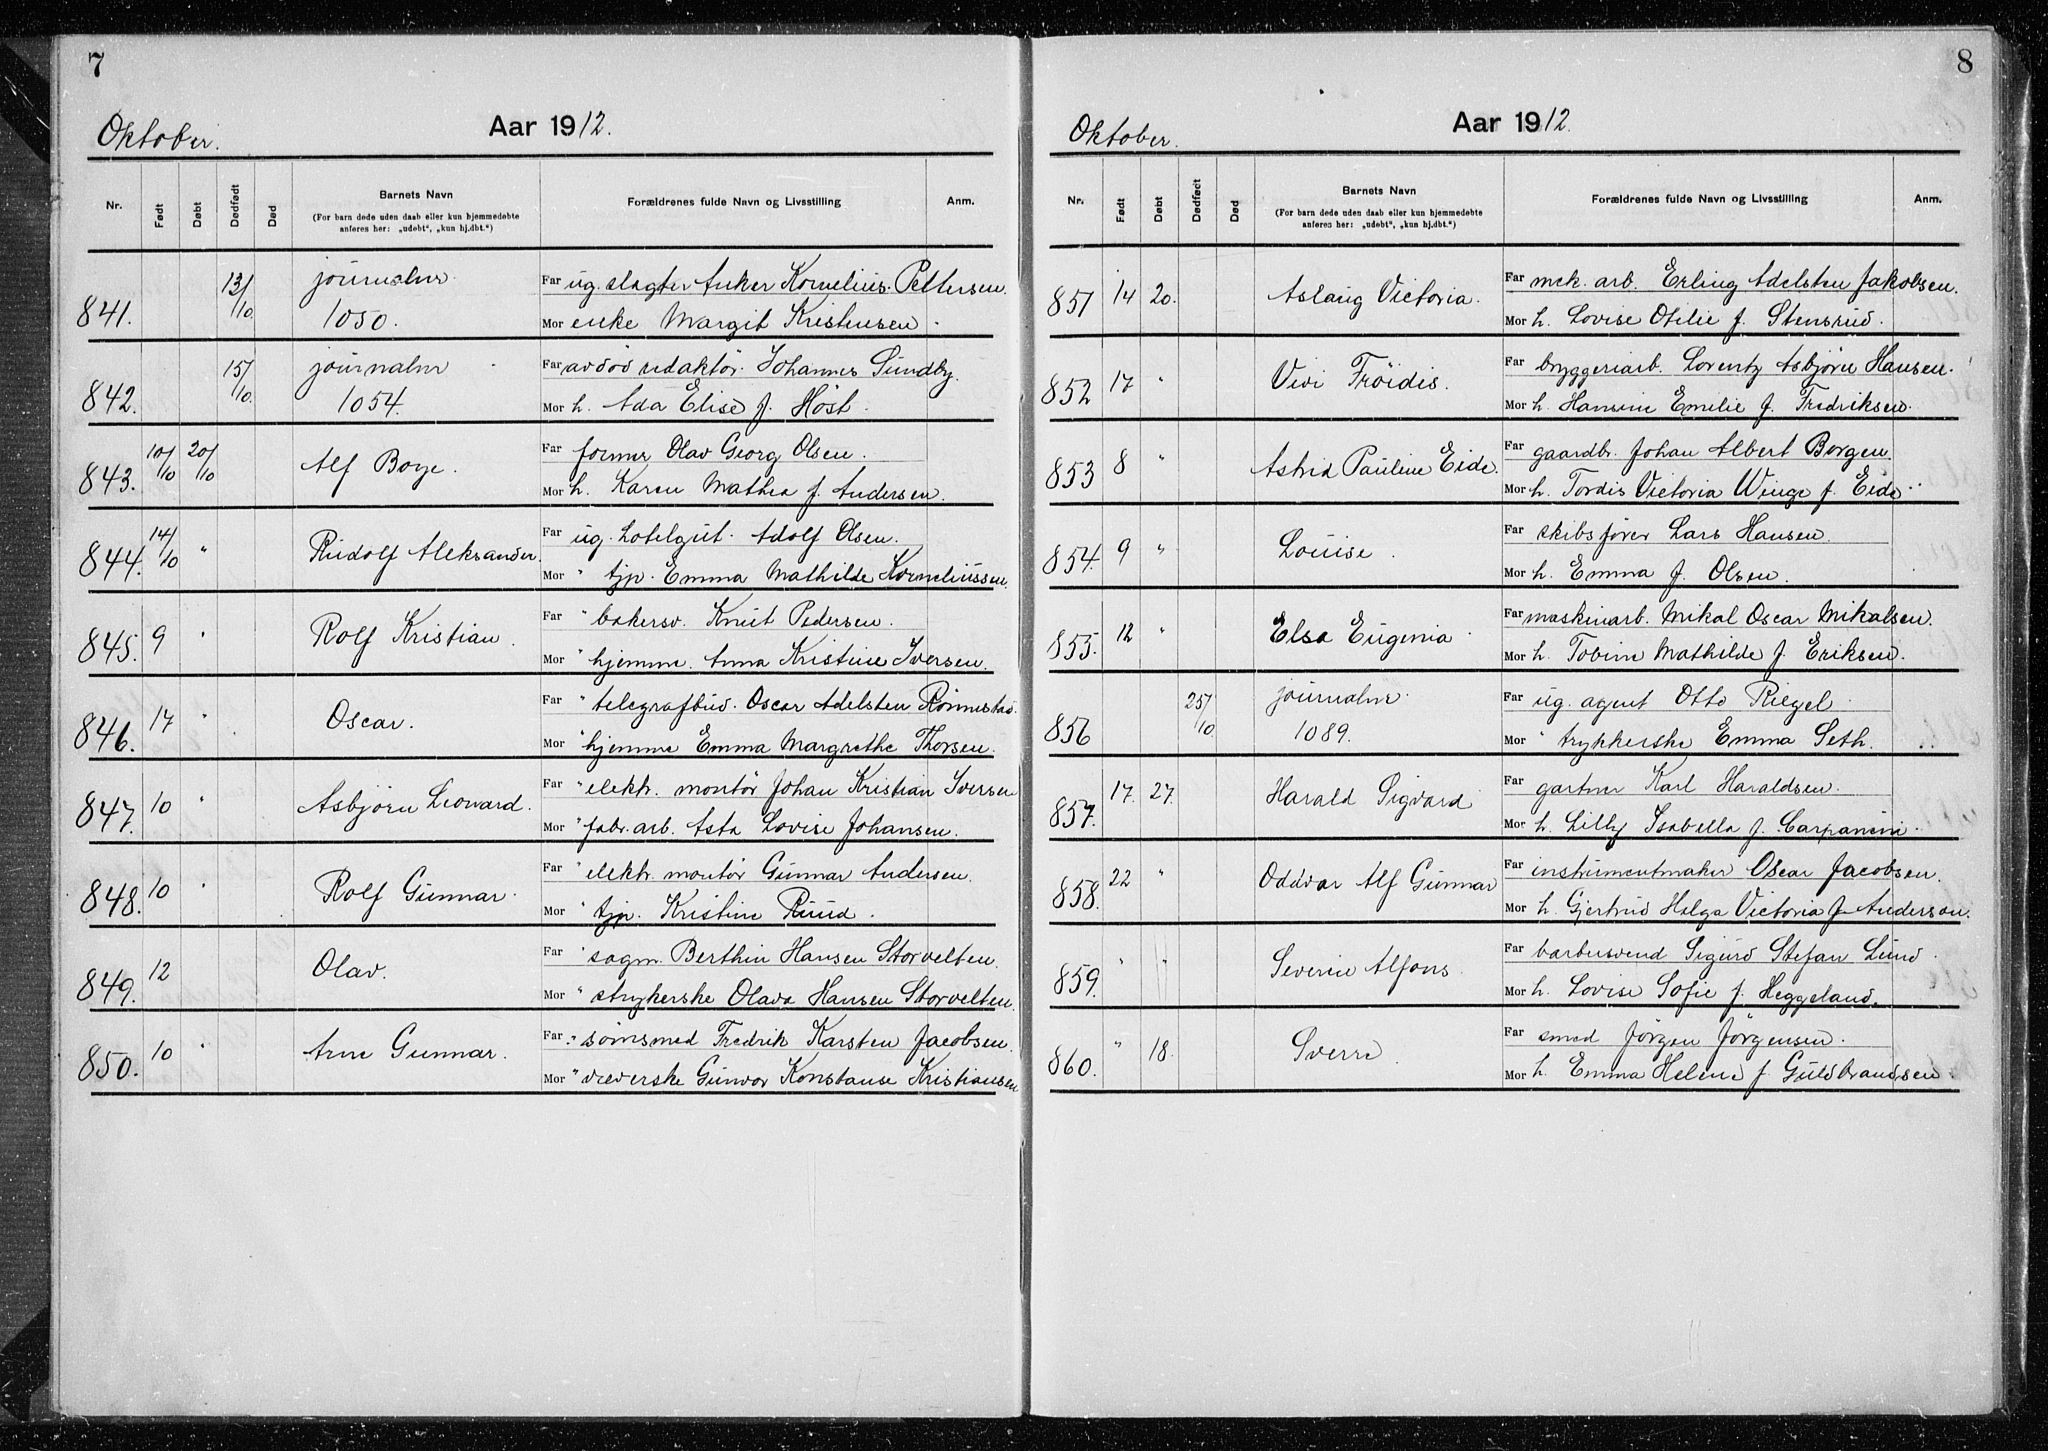 7
Oktober.
Aar 1912.
Nr. Født Døbt Dødfødt Død Barnets Navn Forældrenes fulde Navn og Livsstilling Anm.
(For barn døde uden daab eller kun hjemmedøbte
anføres her: „udøbt“, „kun hj.dbt.“)
841. 13/10 journalnr. Far ug. slagter Anker Kornelius Pettersen.
1050. Mor enke Margit Kristensen.
842. 15/10. journalnr Far avdød redaktør Johannes Sundby.
1054. Mor h. Ada Elise f. Høst.
843. 10/10 20/10 Alf Boye. Far former Olav Georg Olsen.
Mor h. Karen Mathea f. Andersen.
844. 14/10 " Rudolf Aleksander. Far ug. hotelgut. Adolf Olsen.
Mor " tjp. Emma Mathilde Korneliussen.
845. 9 " Rolf Kristian. Far " bakersv. Knut Pedersen.
Mor " hjemme. Anna Kristine Iversen.
846. 17 " Oscar. Far " telegrafbud. Oscar Adelsten Rønnestad.
Mor " hjemme Emma Margrethe Thorsen.
847. 10 " Asbjørn Leonard. Far " elektr. montør Johan Kristian Iversen
Mor " fabr. arb. Asta Lovise Johansen.
848. 10 " Rolf Gunnar. Far " elektr. montør Gunnar Andersen.
Mor " tjp. Kristine Ruud.
849. 12 Olav. Far " sagm. Berthin Hansen Storvelten.
Mor " strykerske Olava Hansen Storvelten.
850. 10 " Arne Gunnar. Far " sømsmed Fredrik Karsten Jacobsen.
Mor " væverske Gunvor Konstanse Kristiansen
8
Oktober.
Aar 1912.
Nr. Født Døbt Dødfødt Død Barnets Navn Forældrenes fulde Navn og Livsstilling Anm.
(For barn døde uden daab eller kun hjemmedøbte
anføres her: „udøbt“, „kun hj.dbt.“)
851 14 20. Aslaug Victoria. Far mek. arb. Erling Adelsten Jakobsen.
Mor h. Lovise Otilie f. Stensrud.
852 17 " Vivi Frøidis. Far bryggeriarb. Lorentz Asbjørn Hansen.
Mor h. Hansine Emelie f. Fredriksen.
853 8 " Astrid Pauline Eide. Far gaardbr. Johan Albert Borgen.
Mor h. Tordis Victoria Winge f. Eide.
854. 9 " Louise. Far skibsfører Lars Hansen.
Mor h. Emma f. Olsen.
855. 12 " Elsa Eugenia. Far maskinarb. Mikal Oscar Mikalsen.
Mor h. Tobine Mathilde f. Eriksen.
856 25/10. journalnr. Far ug. agent Otto Riegel.
1089. Mor " trykkerske Emma Seth.
857. 17. 27. Harald Sigvard Far gartner Karl Haraldsen.
Mor h. Lilly Isabella f. Carpanini.
858. 22 " Oddvar Alf Gunnar Far instrumentmaker Oscar Jacobsen.
Mor h. Gjertrud Helga Victoria f. Anderson.
859. " " Severin Alfons. Far barbersvend Sigurd Stefan Lund.
Mor h. Lovise Sofie f. Heggeland.
860. " 18. Sverre. Far smed Jørgen Jørgensen.
Mor h. Emma Helene f. Guldbrandsen.